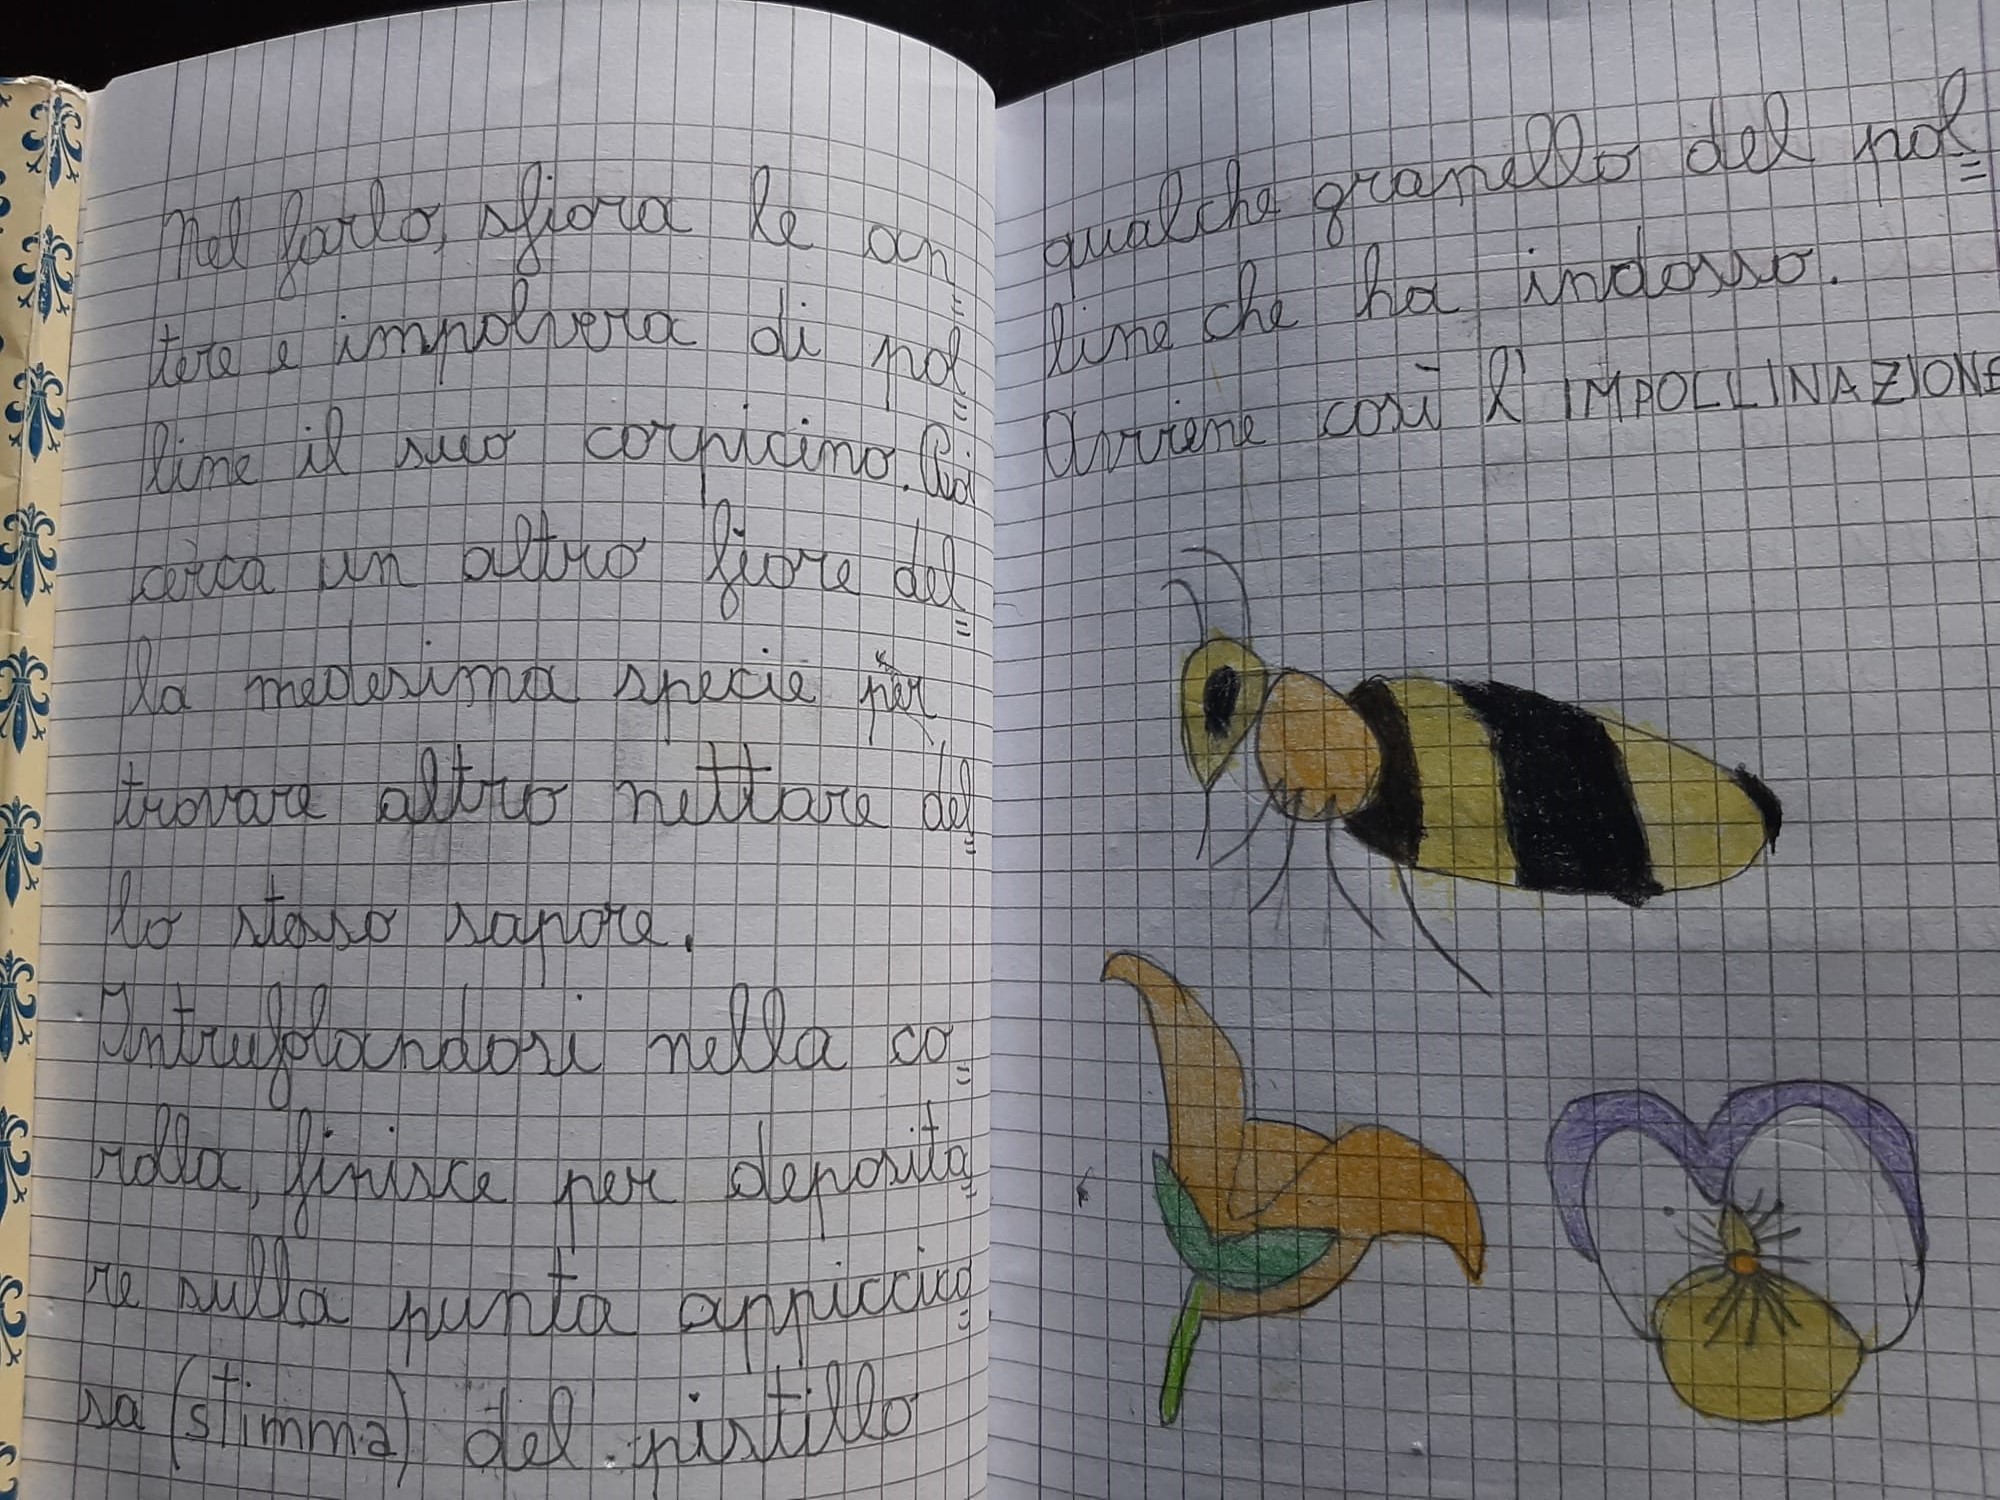 Nel farlo, sfiora le an=
tere e impolvera di pol=
line il suo corpicino. Poi
cerca un altro fiore del=
la medesima specie per
trovare altro nettare del=
lo stesso sapore.
Intrufolandosi nella co=
rolla, finisce per deposita=
re sulla punta appiccico=
sa (stimma) del pistillo
qualche granello del pol=
line che ha indosso.
Avviene così l'IMPOLLINAZIONE